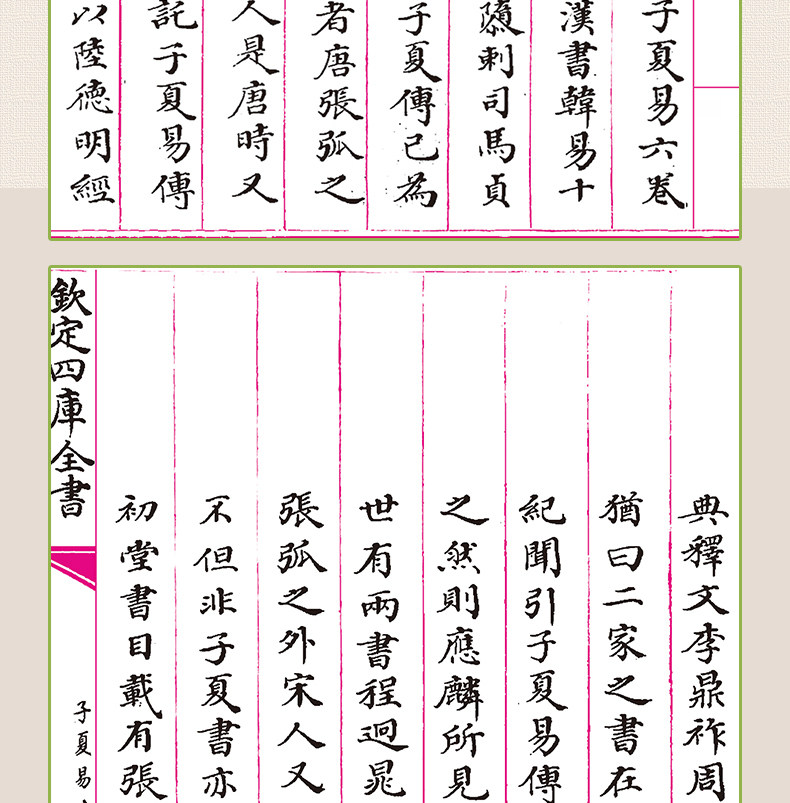 子夏易六卷
漢書韓易十
隱刺司馬貞
子夏傳已為
者唐張弧之
人是唐時又
託子夏易傳
以陸德明經
典釋文李鼎祚周
猶曰二家之書在
紀聞引子夏易傳
之然則應麟所見
世有兩書程迥晁
張弧之外宋人又
不但非子夏書亦
初堂書目載有張
欽定四庫全書
子夏易